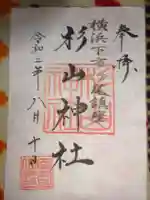 奉拝
横浜下末吉鎮座
杉山神社
令和二年八月十日